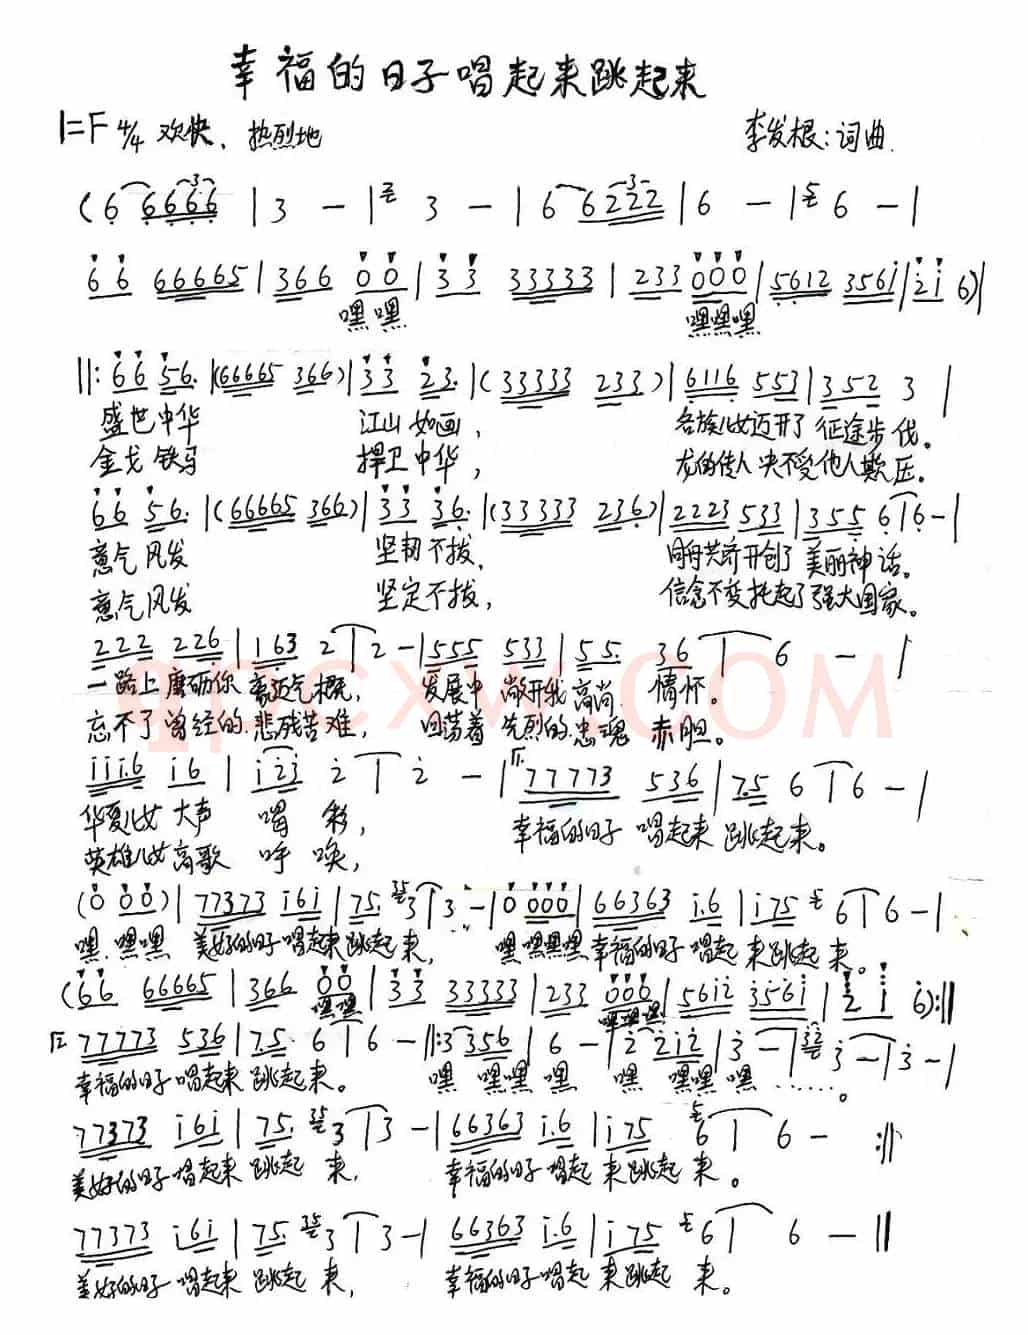 幸福的日子唱起来跳起来
1=F 4/4 欢快、热烈地 李发根:词曲.
(6 6666 3 | 3 - | 3 - | 6 6222 3 | 6 - | 5 6 - |
66 66665 | 366 00 | 33 33333 | 233 000 | 5612 3561 | 21 6) |
嘿嘿 嘿嘿嘿
||: 66 56. | (66665 366) | 33 23. | (33333 233) | 6116 553 | 352 3 |
盛世中华 江山如画, 各族儿女迈开了征途步伐。
金戈铁马 捍卫中华, 龙的传人决不受他人欺压。
66 56. | (66665 366) | 33 36. | (33333 236) | 2223 533 | 355 6 | 6 - |
意气风发 坚韧不拔, 同舟共济开创了美丽神话。
意气风发 坚定不拔, 信念不变托起了强大国家。
222 226 | 163 2 | 2 - | 555 533 | 55. 36 | 6 - |
一路上磨砺你豪迈气概, 发展中敞开我高尚情怀。
忘不了曾经的悲残苦难, 回荡着先烈的忠魂赤胆。
111.6 16 | 123 2 | 2 - | 77773 536 | 7.5 6 | 6 - |
华夏儿女大声喝彩, 幸福的日子唱起来跳起来。
英雄儿女高歌呼唤,
(0 00) | 77373 161 | 75. 35 3 | 3 - | 0 000 | 66363 1.6 | 175 5 6 | 6 - |
嘿 嘿嘿 美好的日子唱起来跳起来, 嘿 嘿嘿嘿 幸福的日子唱起来跳起来。
(66 66665 | 366 00 | 33 33333 | 233 000 | 5612 3561 | 21 6) :||
嘿嘿 嘿嘿嘿
77773 536 | 7.5. 6 | 6 - ||: 3 356 | 6 - | 2 212 | 3 - | 32 3 - | 3 - |
幸福的日子唱起来跳起来。 嘿 嘿嘿 嘿 嘿 嘿嘿 嘿 ……。
77373 161 | 75. 35 3 | 3 - | 66363 1.6 | 175 5 6 | 6 - :||
美好的日子唱起来跳起来, 幸福的日子唱起来跳起来。
77373 161 | 75. 35 3 | 3 - | 66363 1.6 | 175 5 6 | 6 - ||
美好的日子唱起来跳起来, 幸福的日子唱起来跳起来。